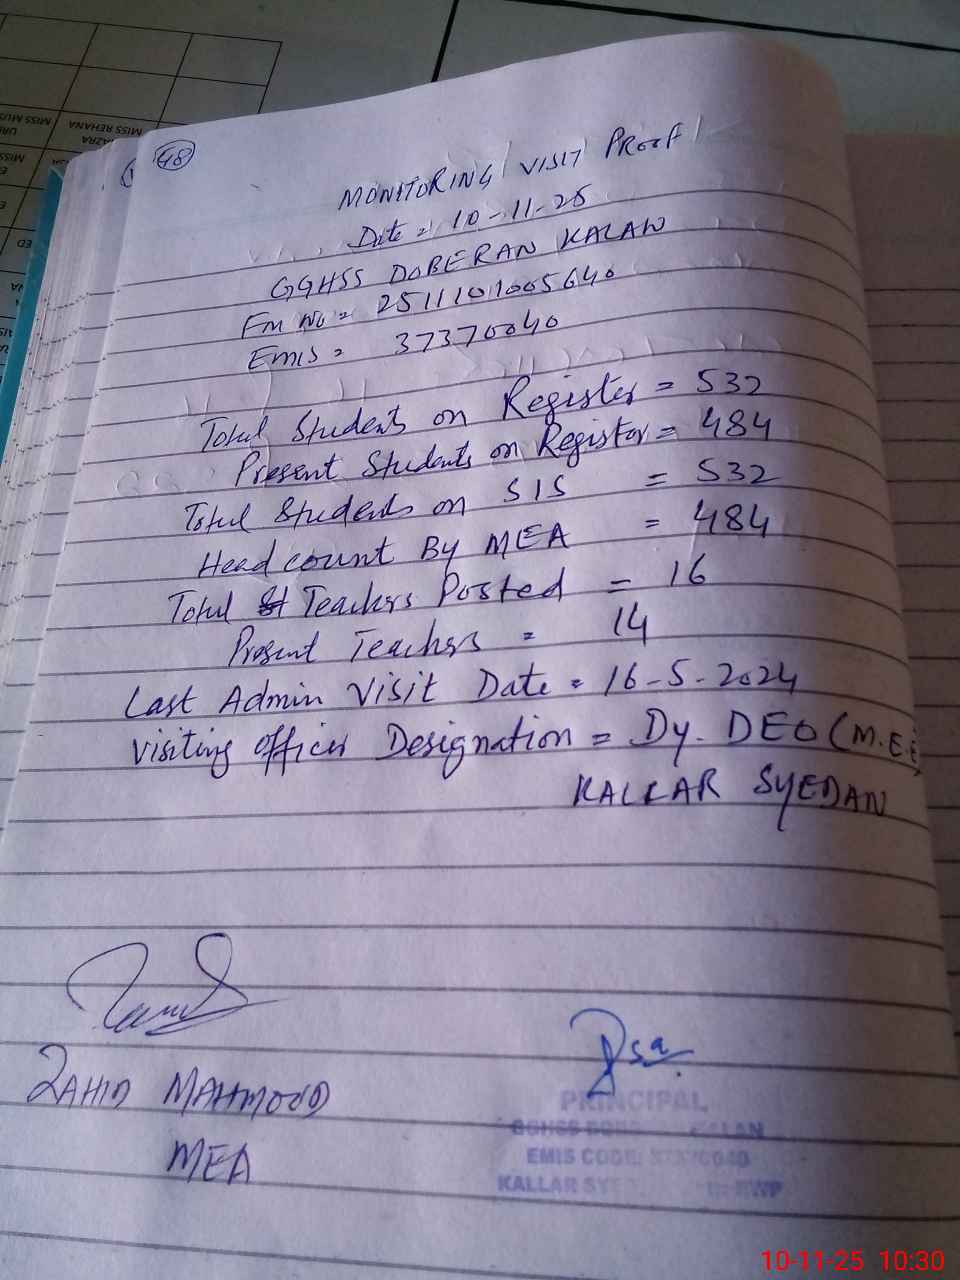 48
MONITORING VISIT PROOF
Date = 10-11-25
GGHSS DOBERAN KALAN
Fm No = 2511101005640
Emis = 37370040
Total Students on Register = 532
Present Students on Register = 484
Total Students on SIS = 532
Head count By MEA = 484
Total Teachers Posted = 16
Present Teachers = 14
Last Admin Visit Date = 16-5-2024
Visiting officer Designation = Dy. DEO (M.E.E)
KALLAR SYEDAN
ZAHID MAHMOOD
MEA
PRINCIPAL
GGHSS KALAN
EMIS CODE: 37370040
KALLAR RWP
10-11-25 10:30
MISS REHANA